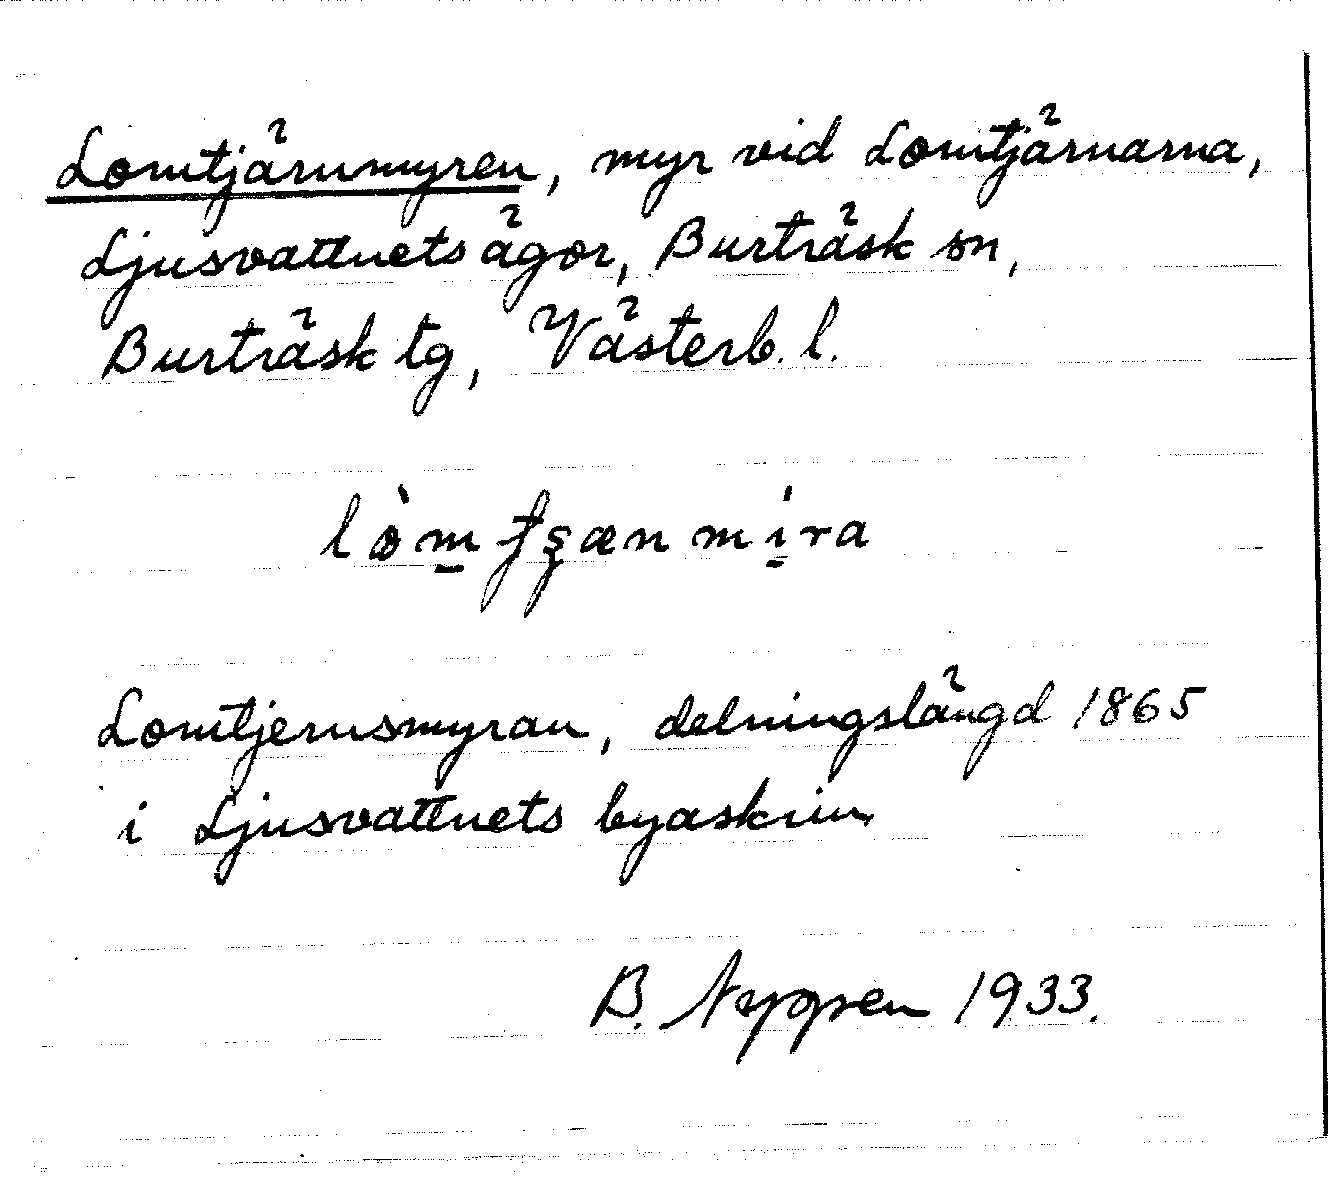 Lomtjärnmyren, myr vid Lomtjärnarna,
Ljusvattnets ägor, Burträsk sn,
Burträsk tg, Västerb. l.
lòm̱ʄʂænmi̱ra
Lomtjernsmyran, delningslängd 1865
i Ljusvattnets byaskrin
B. 1933.